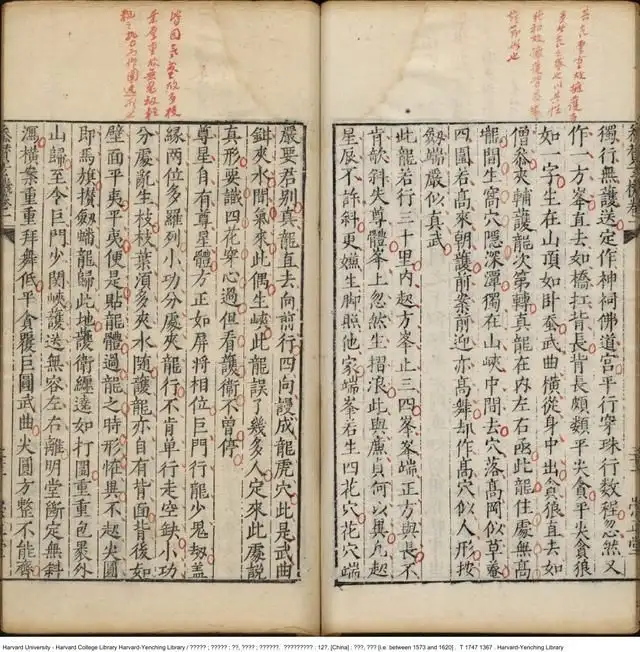 獨行無護送定作神祠佛道宮平行穿珠行數程忽然又
作一方峯直去如橋扛背長背長頗類平尖貪平尖貪狼
如一字生在山頂如臥蚕武曲橫從身中出貪狼直去如
僧參夾輔護龍次第轉真龍在內左右函此龍住處無高
壠間生窩穴隱深潭獨在山峽中間去穴落高岡似草菴
四圍若高來朝護前案前迎亦高舞却作高穴似人形按
劔端嚴似真武
此龍若行三十里內起方峯止三四峯峯端正方與長不
肯欹斜失尊體峯上忽然生摺浪此與廉貞何以異凡起
星辰不許斜更嫌生脚照他家端峯若生四花穴花穴端
嚴要君別真龍直去向前行四向謾成龍虎穴此是武曲
鉗夾水間氣來此偶生峽此龍誤了幾多人定來此處說
真形要識四花穿心過但看護衛不曾停
尊星自有尊星體方正如屏將相位巨門行龍少鬼劫蓋
緣兩位多羅列小功分處夾龍行不肯單行走空缺小功
分處亂生枝枝葉須多夾水隨護龍亦自有背面背後如
壁面平夷平夷便是貼龍體過龍之時形怪異不起尖圓
即馬旗攢劔蟠龍歸此地護衛纒遶如打圍重重包褁外
山歸至令巨門少関峽護送無容左右離明堂斷定無斜
瀉橫案重重拜舞低平貪覆巨圓武曲尖圓方整不能齊
Harvard University - Harvard College Library Harvard-Yenching Library / ????? ; ????? : ??, ???? ; ??????. ????????? : 12?, [China] : ???, ??? [i.e. between 1573 and 1620] . T 1747 1367 . Harvard-Yenching Library